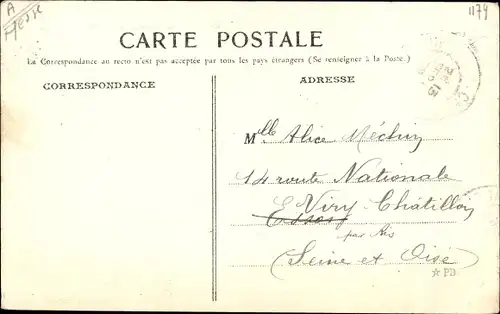 A
1179
CARTE POSTALE
La Correspondance au recto n'est pas acceptée par tous les pays étrangers (Se renseigner à la Poste.)
CORRESPONDANCE
ADRESSE
Mlle Alice Méchin
14 route Nationale
Viry Châtillon
Essoy
par
(Seine et Oise)
☆ PB